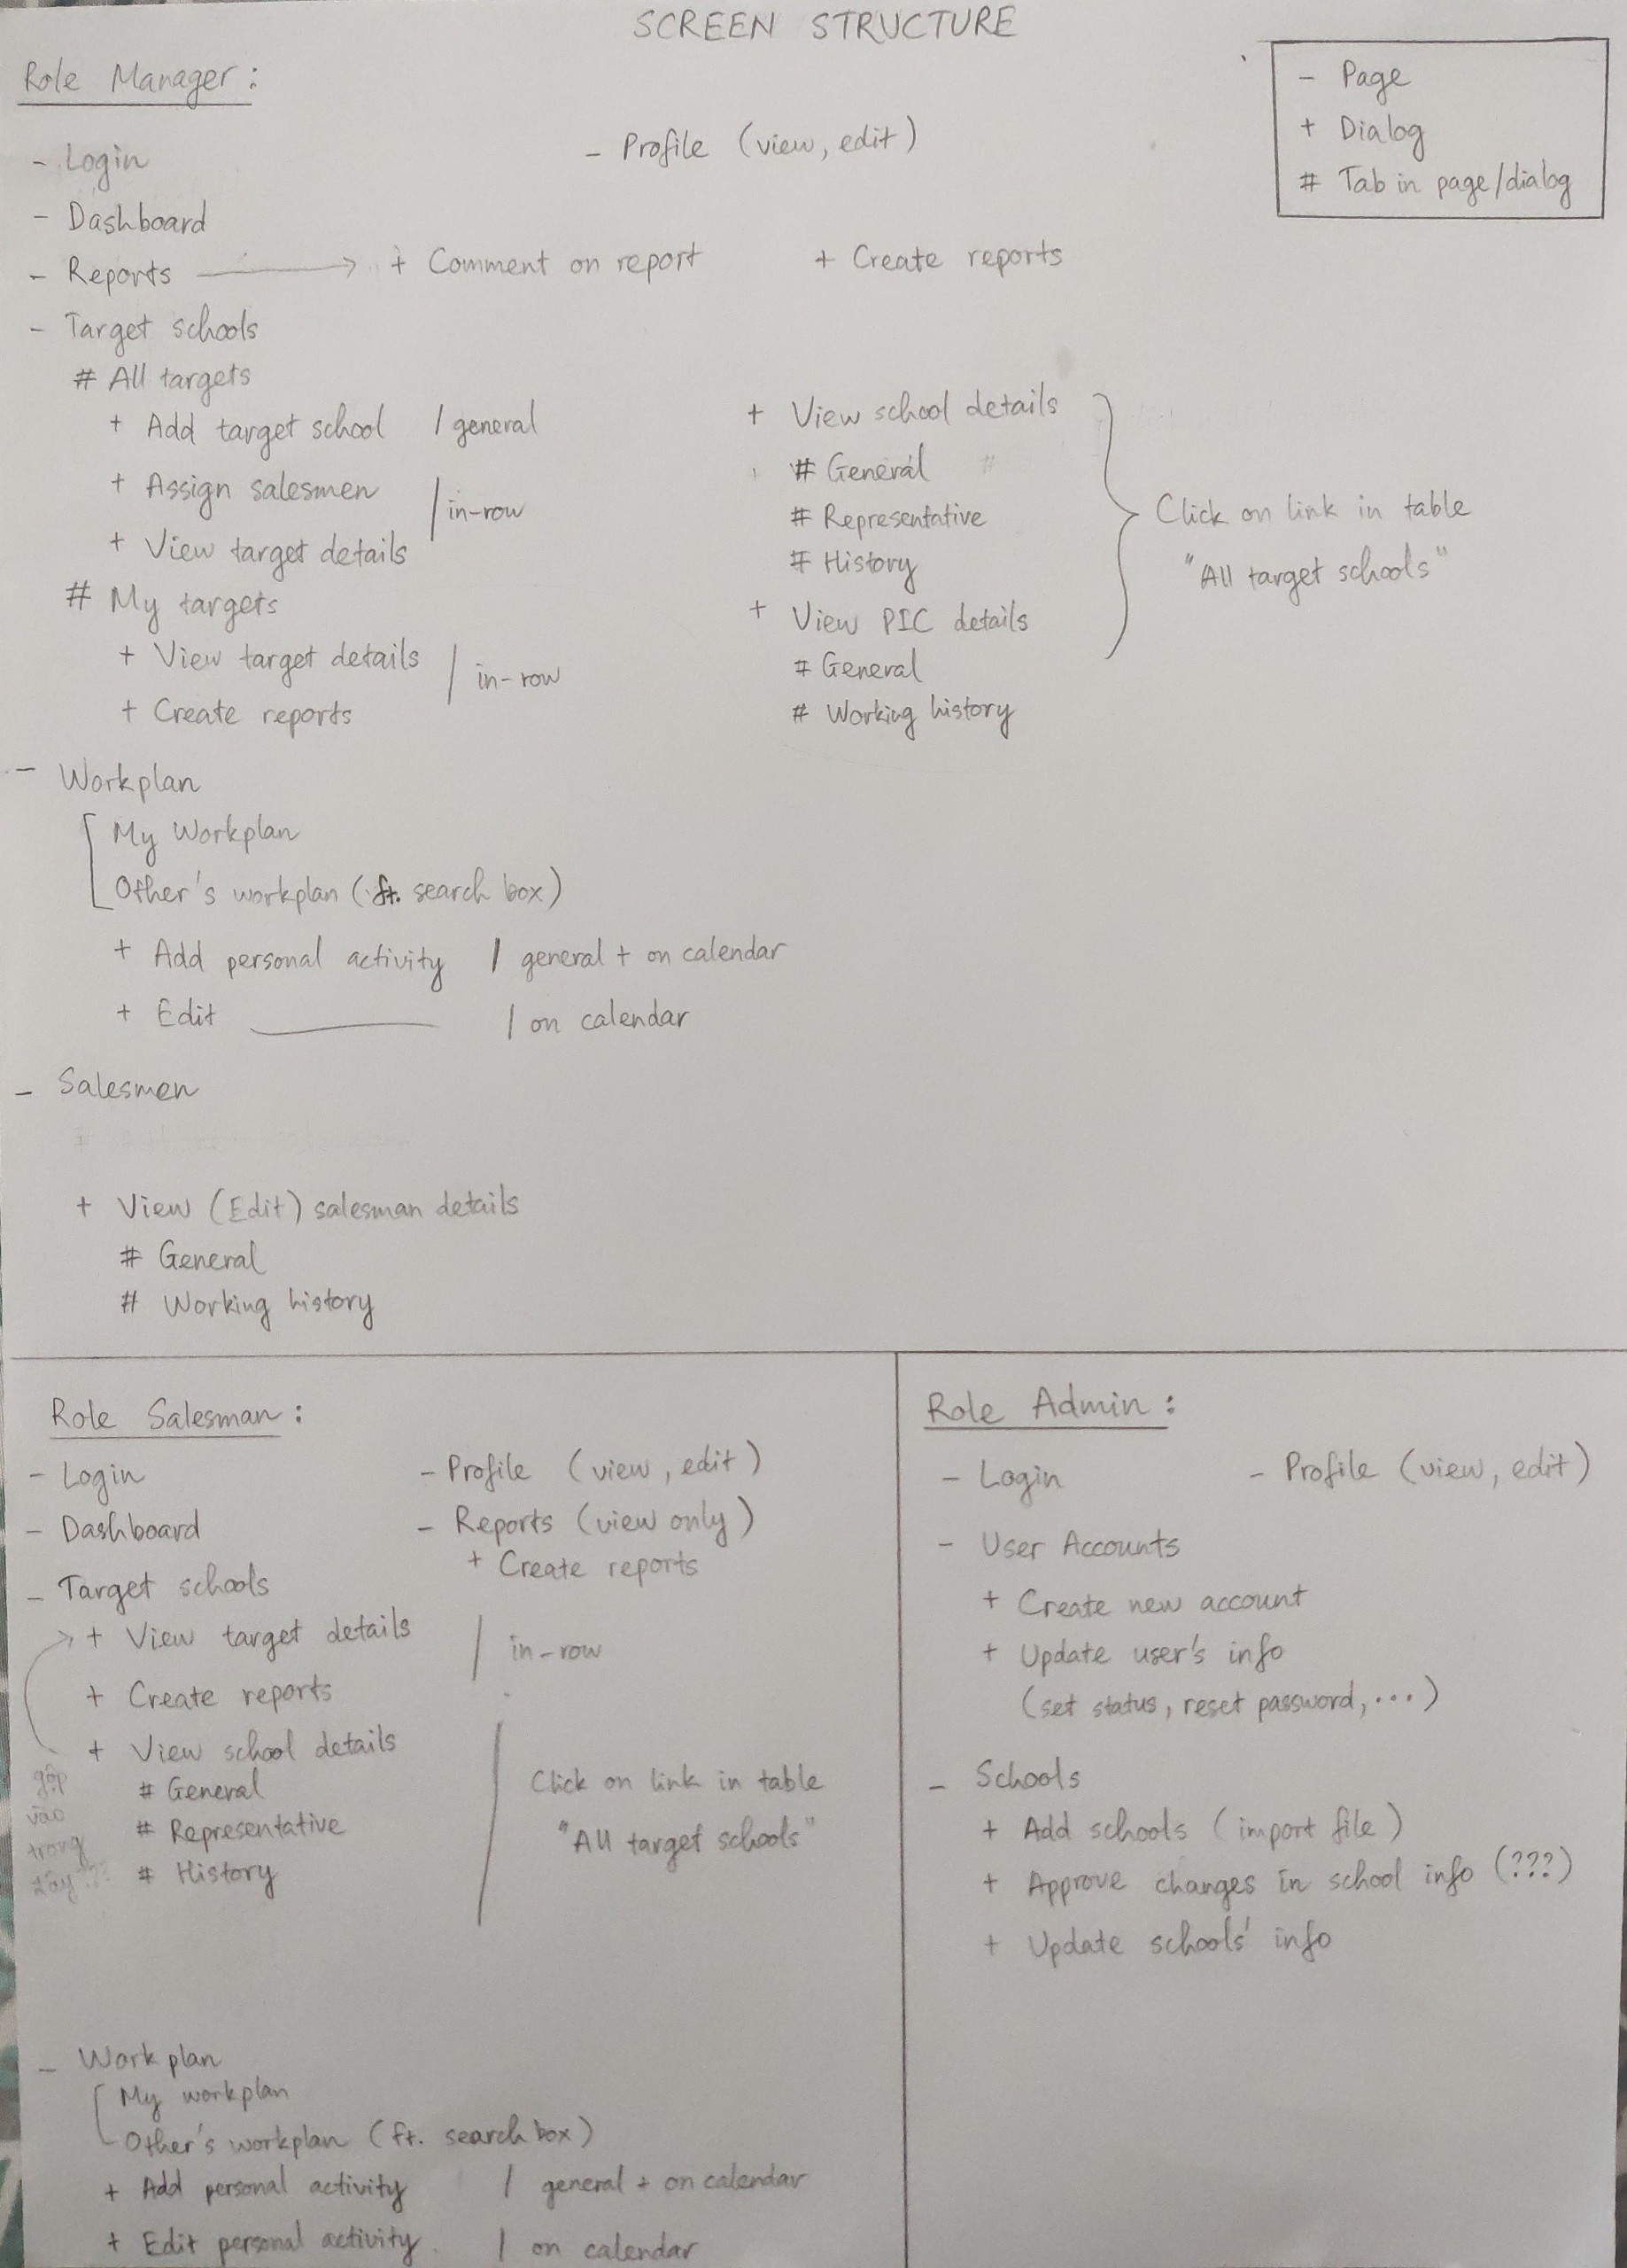 SCREEN STRUCTURE
- Page
+ Dialog
# Tab in page/dialog
Role Manager:
- Login
- Profile (view, edit)
- Dashboard
- Reports → + Comment on report + Create reports
- Target schools
# All targets
+ Add target school / general
+ Assign salesmen
+ View target details
/ in-row
# My targets
+ View target details
+ Create reports
/ in-row
+ View school details
# General
# Representative
# History
+ View PIC details
# General
# Working history
Click on link in table
"All target schools"
- Workplan
My Workplan
Other's workplan (ft. search box)
+ Add personal activity / general + on calendar
+ Edit ______ / on calendar
- Salesmen
+ View (Edit) salesman details
# General
# Working history
Role Salesman:
- Login
- Dashboard
- Profile (view, edit)
- Reports (view only)
+ Create reports
- Target schools
+ View target details
+ Create reports
/ in-row
+ View school details
# General
# Representative
# History
gộp
vào
trong
đây???
Click on link in table
"All target schools"
- Workplan
My workplan
Other's workplan (ft. search box)
+ Add personal activity / general + on calendar
+ Edit personal activity / on calendar
Role Admin:
- Login
- Profile (view, edit)
- User Accounts
+ Create new account
+ Update user's info
(set status, reset password, ...)
- Schools
+ Add schools (import file)
+ Approve changes in school info (???)
+ Update schools' info